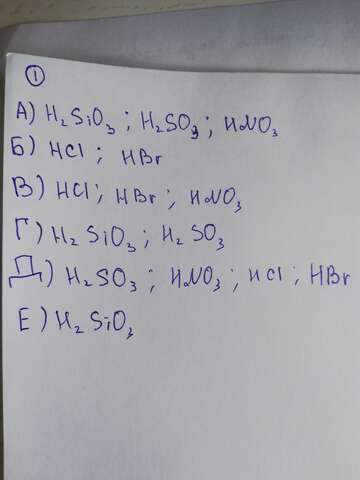 ①
А) H₂SiO₃ ; H₂SO₃ ; HNO₃
Б) HCl ; HBr
В) HCl ; HBr ; HNO₃
Г) H₂SiO₃ ; H₂SO₃
Д) H₂SO₃ ; HNO₃ ; HCl ; HBr
Е) H₂SiO₃